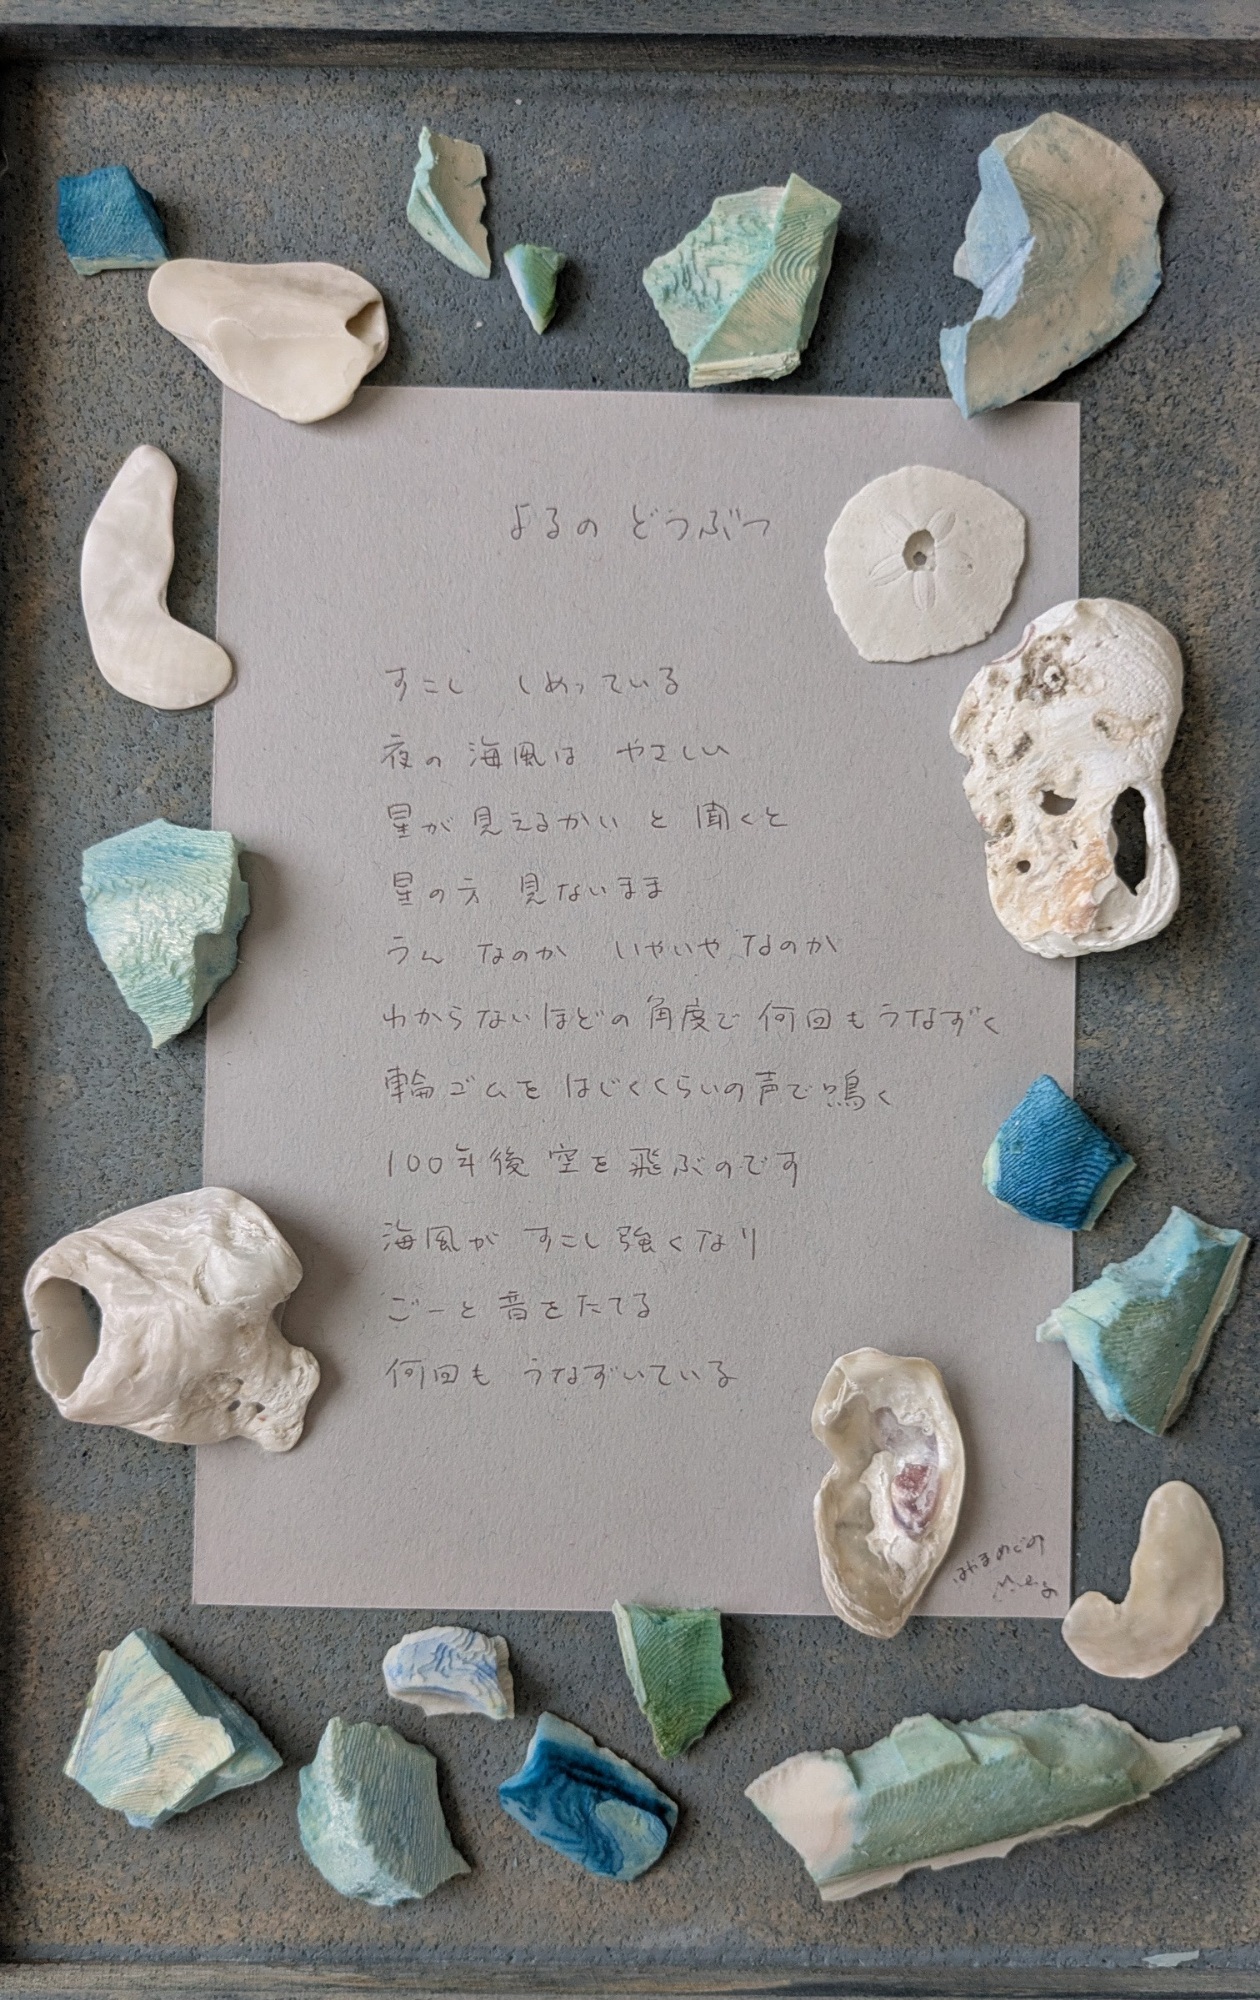 よるの どうぶつ
すこし しめっている
夜の 海風は やさしい
星が 見えるかい と 聞くと
星の方 見ないまま
うん なのか いやいや なのか
わからないほどの 角度で 何回も うなずく
輪ゴムを はじくくらいの 声で 鳴く
100年後 空を 飛ぶのです
海風が すこし 強く なり
ごーと 音を たてる
何回も うなずいている